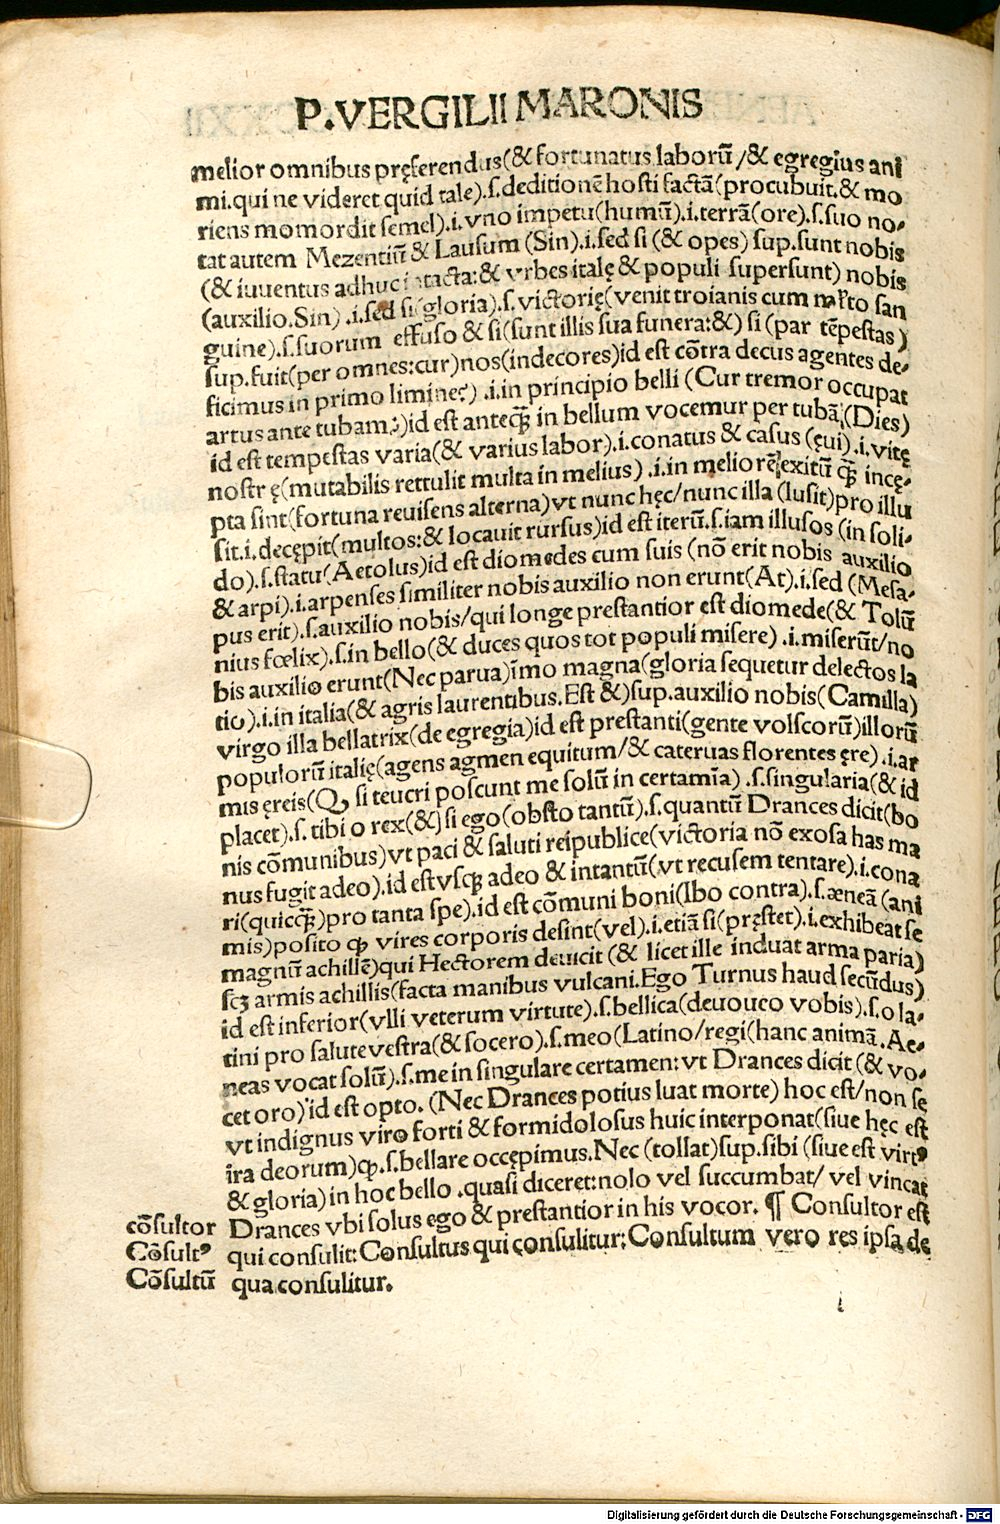 P.VERGILII MARONIS
melior omnibus pręferendus(& fortunatus laborū/& egregius ani
mi.qui ne videret quid tale).ſ.deditionē hoſti factā(procubuit.& mo
riens momordit ſemel).i.vno impetu(humū).i.terrā(ore).ſ.ſuo no-
tat autem Mezentiū & Lauſum (Sin).i.ſed ſi (& opes) ſup.ſunt nobis
(& iuuentus adhuc intacta:& vrbes italę & populi ſuperſunt) nobis
(auxilio.Sin) .i.ſed ſi(gloria).ſ.victorię(venit troianis cum mľto ſan
guine).ſ.ſuorum effuſo & ſi(ſunt illis ſua funera:&) ſi (par tēpeſtas)
ſup.fuit(per omnes:cur)nos(indecores)id eſt cōtra decus agentes de-
ficimus in primo limine?) .i.in principio belli (Cur tremor occupat
artus ante tubam?)id eſt anteꝙ̃ in bellum vocemur per tubā(Dies)
id eſt tempeſtas varia(& varius labor).i.conatus & caſus (ęui).i.vitę
noſtrę(mutabilis rettulit multa in melius) .i.in meliorē exitū ꝙ̃ incę-
pta ſint(fortuna reuiſens alterna)vt nunc hęc/nunc illa (luſit)pro illu
ſit.i.decępit(multos:& locauit rurſus)id eſt iterū.ſ.iam illuſos (in ſoli-
do).ſ.ſtatu(Aetolus)id eſt diomedes cum ſuis (nō erit nobis auxilio
& arpi).i.arpenſes ſimiliter nobis auxilio non erunt(At).i.ſed (Meſa-
pus erit).ſ.auxilio nobis/qui longe preſtantior eſt diomede(& Tolū
nius fœlix).ſ.in bello(& duces quos tot populi miſere) .i.miſerūt/no
bis auxilio erunt(Nec parua)īmo magna(gloria ſequetur delectos la
tio).i.in italia(& agris laurentibus.Eſt &)ſup.auxilio nobis(Camilla)
virgo illa bellatrix(de egregia)id eſt preſtanti(gente volſcorū)illorū
populorū italię(agens agmen equitum/& cateruas florentes ęre).i.ar
mis ęreis(Q ſi teucri poſcunt me ſolū in certamīa) .ſ.ſingularia(& id
placet).ſ.tibi o rex(&)ſi ego(obſto tantū).ſ.quantū Drances dicit(bo
nis cōmunibus)vt paci & ſaluti reipublice(victoria nō exoſa has ma
nus fugit adeo).id eſt vſqꝫ adeo & intantū(vt recuſem tentare).i.cona
ri(quicꝙ̃)pro tanta ſpe).id eſt cōmuni boni(Ibo contra).ſ.æneā (ani
mis)poſito ꝙ vires corporis deſint(vel).i.etiā ſi(pręſtet).i.exhibeat ſe
magnū achillē)qui Hectorem deuicit (& licet ille induat arma paria)
ſcꝫ armis achillis(facta manibus vulcani.Ego Turnus haud ſecūdus)
id eſt inferior(vlli veterum virtute).ſ.bellica(deuouco vobis).ſ.o la-
tini pro ſalute veſtra(& ſocero).ſ.meo(Latino/regi(hanc animā.Ae-
neas vocat ſolū).ſ.me in ſingulare certamen:vt Drances dicit (& vo-
cet oro)id eſt opto. (Nec Drances potius luat morte) hoc eſt/non ſe
vt indignus viro forti & formidoloſus huic interponat(ſiue hęc eſt
ira deorum)ꝙ.ſ.bellare occępimus.Nec (tollat)ſup.ſibi (ſiue eſt virtꝰ
& gloria) in hoc bello .quaſi diceret:nolo vel ſuccumbat/ vel vincat
Drances vbi ſolus ego & preſtantior in his vocor. ¶ Conſultor eſt
qui conſulit: Conſultus qui conſulitur: Conſultum vero res ipſa de
qua conſulitur.
cōſultor
Cōſultꝰ
Cōſultū
Digitalisierung gefördert durch die Deutsche Forschungsgemeinschaft - DFG